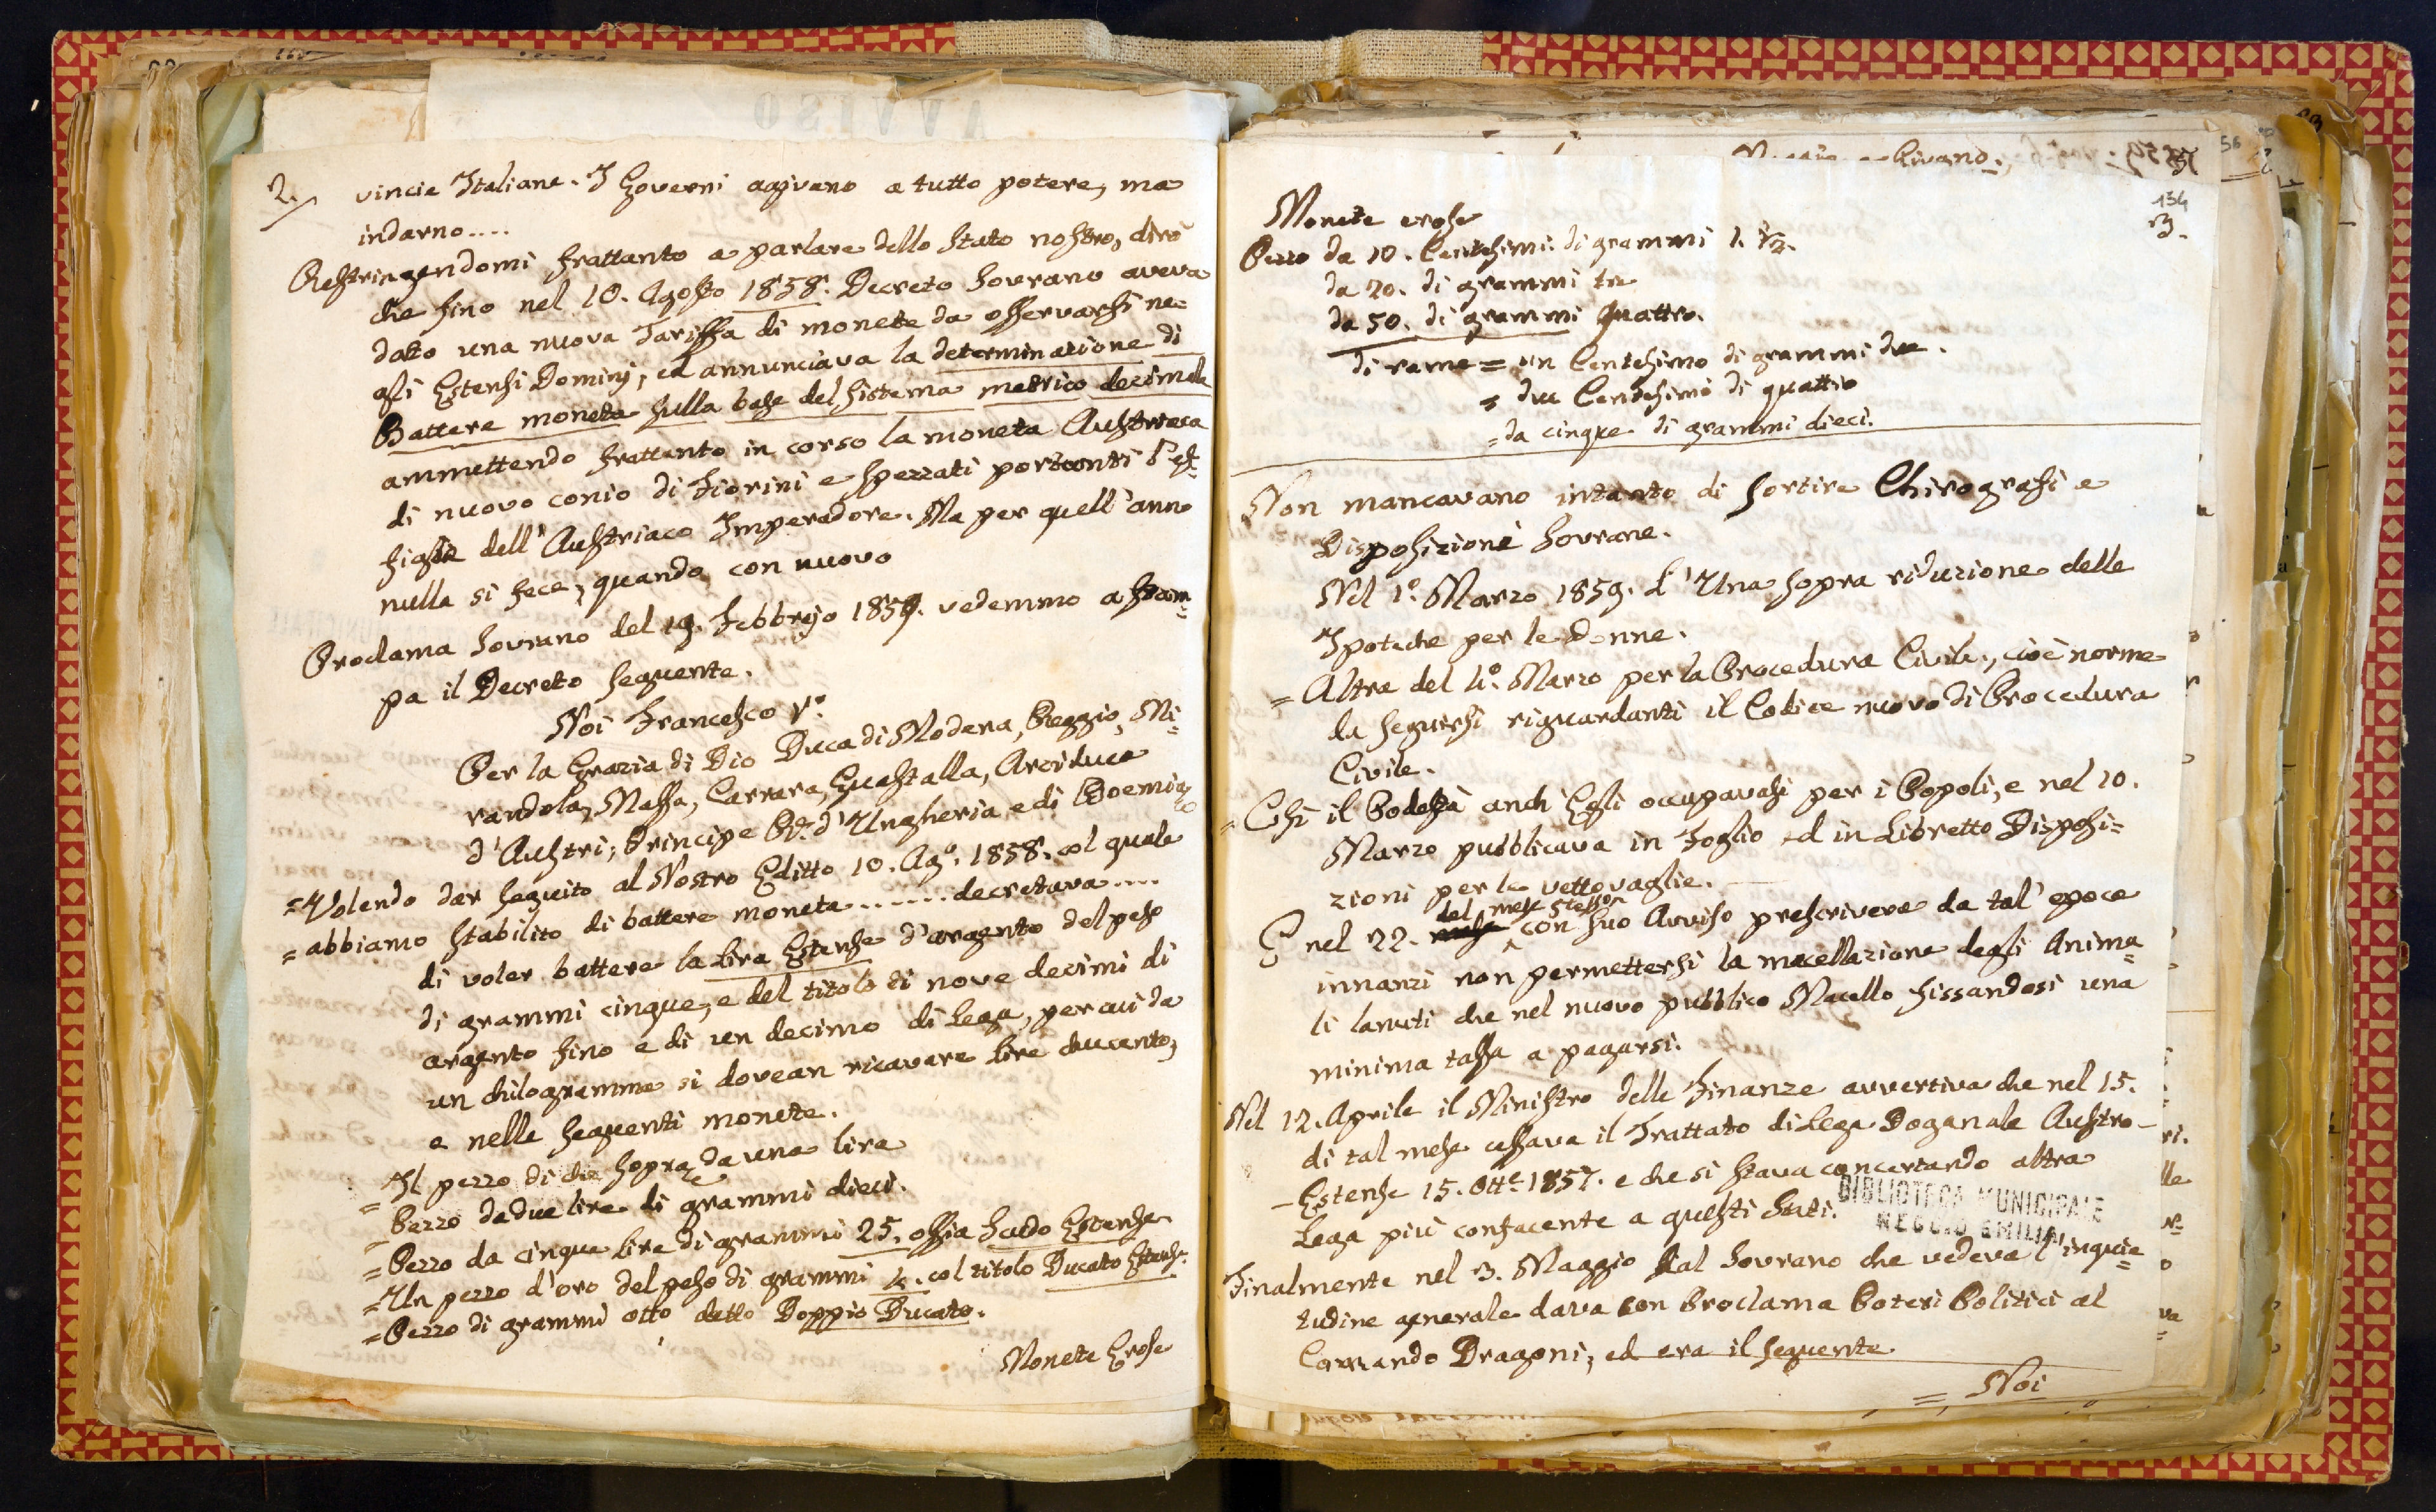 2.
vincie Italiane. I Governi agivano a tutto potere, ma
indarno....
Restringendomi frattanto a parlare dello Stato nostro, dirò
che fino nel 10. Agosto 1858. Decreto Sovrano aveva
dato una nuova Tariffa di monete da osservarsi ne=
gli Estensi Dominj, ed annunciava la determinazione di
Battere moneta sulla base del sistema metrico decimale
ammettendo frattanto in corso la moneta Austriaca
di nuovo conio di Fiorini e spezzati portanti l'ef=
figie dell'Austriaco Imperadore. Ma per quell'anno
nulla si fece, quando con nuovo
Proclama Sovrano del 19. Febbrajo 1859. vedemmo a stam=
pa il Decreto seguente.
Noi Francesco Vº.
Per la Grazia di Dio Duca di Modena, Reggio, Mi=
randola, Massa, Carrara, Guastalla, Arciduca
d'Austri; Principe Rº. d'Ungheria e di Boemia
=Volendo dar seguito al Nostro Editto 10. Agº. 1858. col quale
=abbiamo stabilito di battere moneta ....... decretava ....
di voler battere la Lira Estense d'argento del peso
di grammi cinque, e del titolo di nove decimi di
argento fino e di un decimo di Lega, per cui da
un chilogramma si dovean ricavare lire ducento,
e nelle seguenti monete.
=Il pezzo di che sopra da una lira
=Pezzo da due lire di grammi dieci.
=Pezzo da cinque lire di grammi 25. ossia Scudo Estense
=Un pezzo d'oro del peso di grammi 4. col titolo Ducato Estense.
=Pezzo di grammi otto detto Doppio Ducato.
Monete Erose
134
3.
Monete erose
Pezzo da 10. Centesimi di grammi 1. ½.
da 20. di grammi tre
da 50. di grammi quattro.
di rame = un Centesimo di grammi due.
= due Centesimi di quattro
= da cinque di grammi dieci.
Non mancavano intanto di sortire Chirografi e
Disposizioni Sovrane.
Nel 1º. Marzo 1859. L'Una sopra riduzione delle
Ipoteche per le Donne.
=Altra del 4º. Marzo per la Procedura Civile, cioè norme
da seguirsi riguardanti il Codice nuovo di Procedura
Civile.
=Così il Podestà anch'Egli occupavasi per i Popoli, e nel 10.
Marzo pubblicava in Foglio ed in Libretto Disposi=
zioni per le vettovaglie.
del mese stesso
E nel 22. con suo Avviso prescriveva da tal'epoca
innanzi non permettersi la macellazione degli Anima=
li lanuti che nel nuovo pubblico Macello fissandosi una
minima tassa a pagarsi.
Nel 12. Aprile il Ministro delle Finanze avvertiva che nel 15.
di tal mese cessava il Trattato di Lega Doganale Austro-
-Estense 15. Ottᵉ. 1857. e che si stava concertando altra
Lega più confacente a questi Stati.
BIBLIOTECA MUNICIPALE
REGGIO EMILIA
Finalmente nel 3. Maggio dal Sovrano che vedeva l'inquie=
tudine generale dava con Proclama Poteri Politici al
Comando Dragoni; ed era il seguente
= Noi